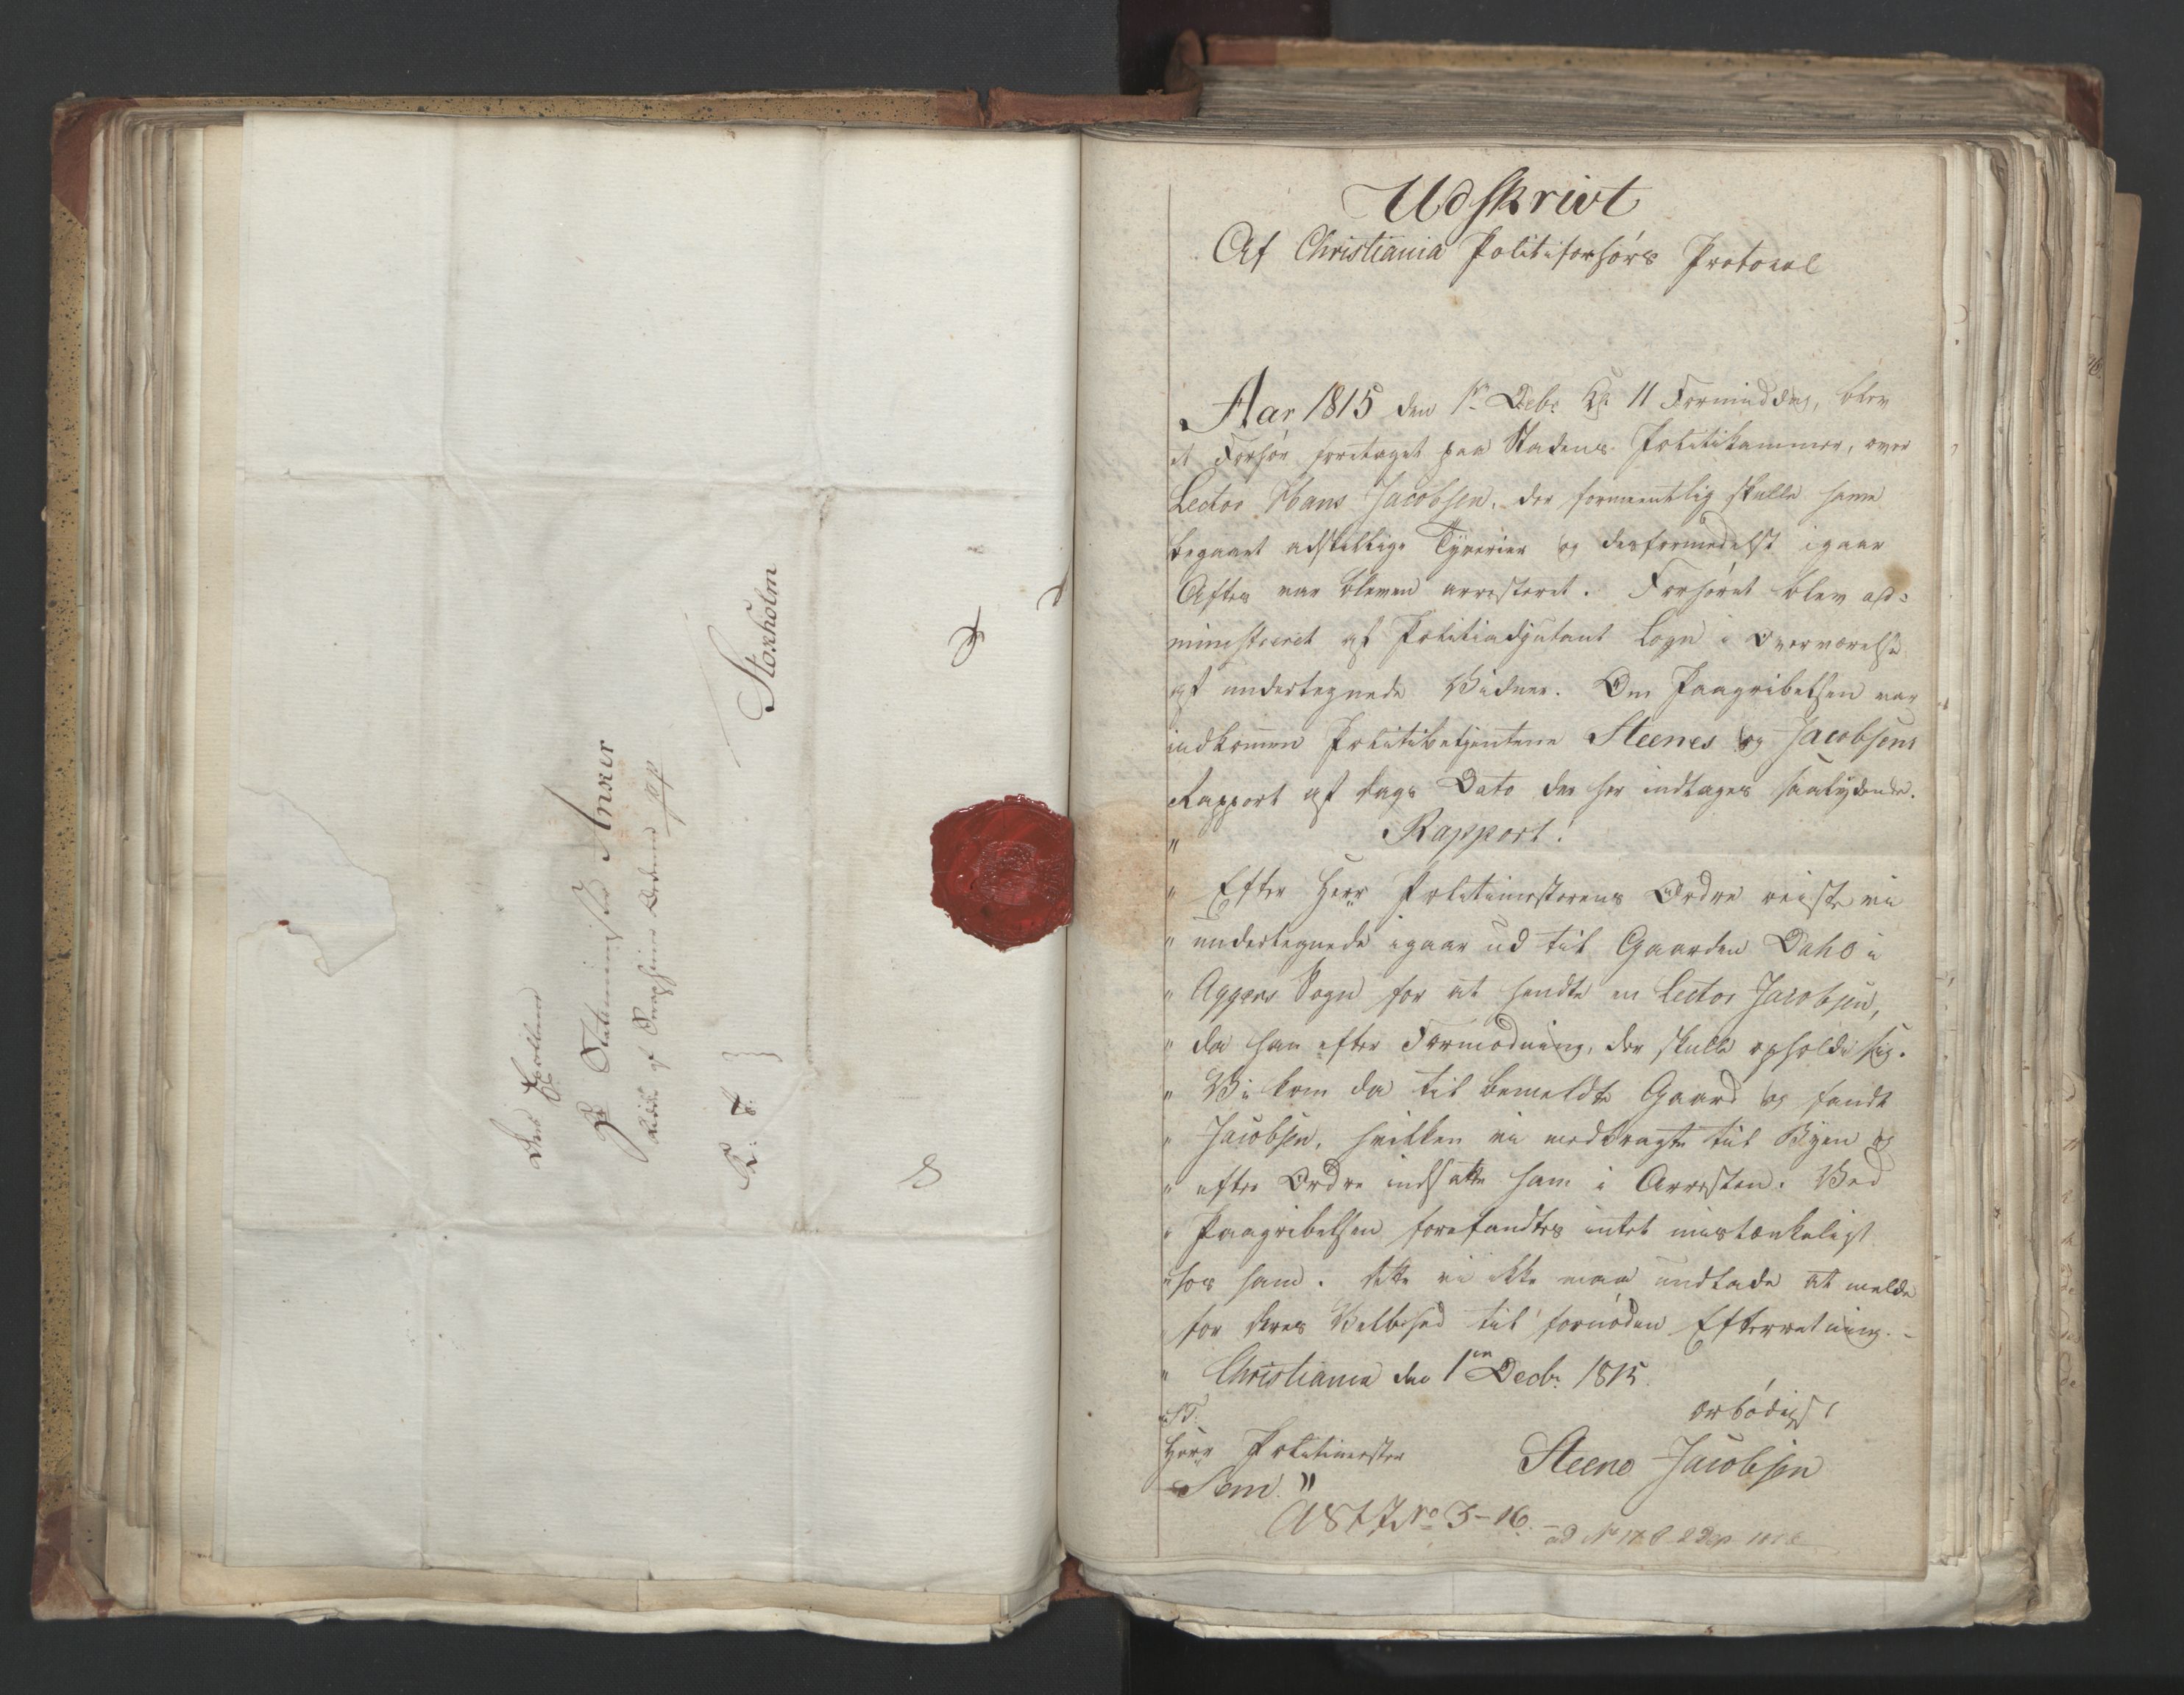 Hs Excellence
Hr Statsminister Anker
Ridder af Seraphiner Ordenen pp
Stokholm
K: T:
Udskrivt
Af Christiania Politiforhørs Protocol
Aar 1815 den 1ste Decbr Kl: 11 Formiddag, blev
et Forhør foretaget paa Stadens Politikammer, over
Lector Hans Jacobsen, der formeentlig skulle have
begaaet adskillige Tyverier og desformedelst igaar
Aftes var bleven arresteret. Forhøret blev ad=
ministreret af Politiadjutant Logn i Overværelse
af undertegnede Vidner. Om Paagribelsen var
indkommen Politibetjentene Steenes og Jacobsens
Rapport af Dags Dato der her indtages saalydende.
" Rapport!
" Efter Herr Politimesterens Ordre reiste vi
" undertegnede igaar ud til Gaarden Dahl i
" Aggers Sogn for at hendte en Lector Jacobsen,
" da han efter Formodning, der skulle opholde sig.
" Vi kom da til bemeldte Gaard og fandt
" Jacobsen, hvilken vi medbragte til Byen og
" efter Ordre indsatte ham i Arresten. Ved
" Paagribelsen forefandtes intet mistænkeligt
" hos ham. Dette vi ikke maa undlade at melde
for Deres Velbhed til fornøden Efterretning. -
" Christiania den 1en Decbr 1815.
ærbødigst
" S.T.
Herr Politimester
Steene Jacobsen
Sem. "
No 3-16.
ad No 178